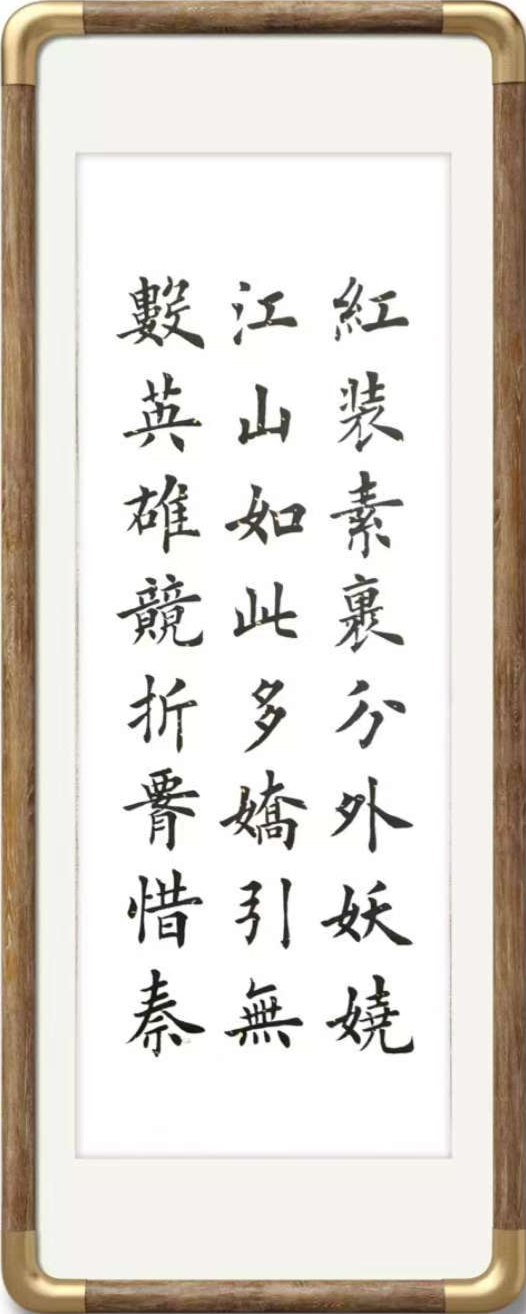 紅装素裹分外妖嬈
江山如此多嬌引無
數英雄競折腰惜秦